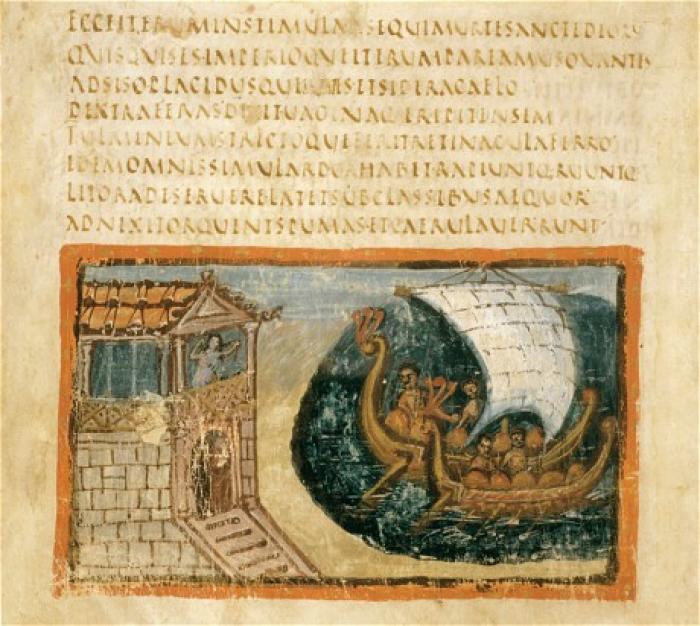 ECCEITERUMINSTIMULATSEQUIMURTESANCTEDEOR
QUISQUISESIMPERIOQUEITERUMPAREAMUSOVANTIS
ADSISOPLACIDUSQUEIUVESETSIDERACAELO
DEXTRAFERASDIXITVAGINAQ·ERIPITENSEM
FULMINEUMSTRICTOQUEFERITRETINACULAFERRO
IDEMOMNISSIMULARDORHABETRAPIUNTQ·RUUNTQ·
LITORADESERUERELATETSUBCLASSIBUSAEQUOR
ADNIXITORQUENTSPUMASETCAERULAVERRUNT